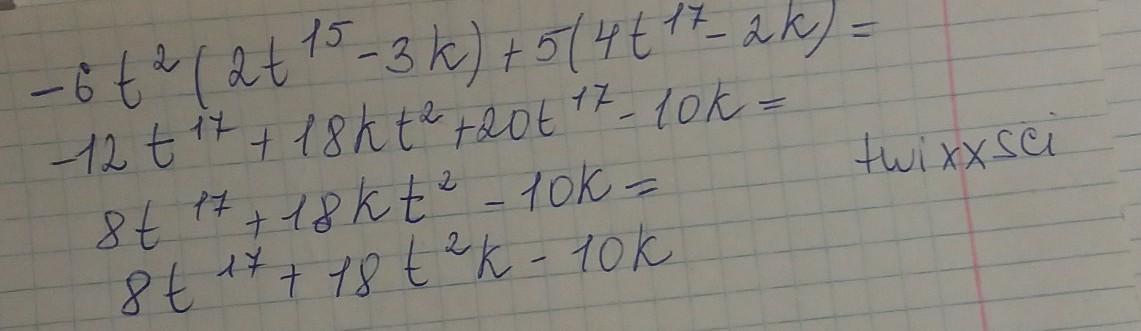 -6t²(2t¹⁵-3k)+5(4t¹⁷-2k)=
-12t¹⁷+18kt²+20t¹⁷-10k=
twixxsci
8t¹⁷+18kt²-10k=
8t¹⁷+18t²k-10k